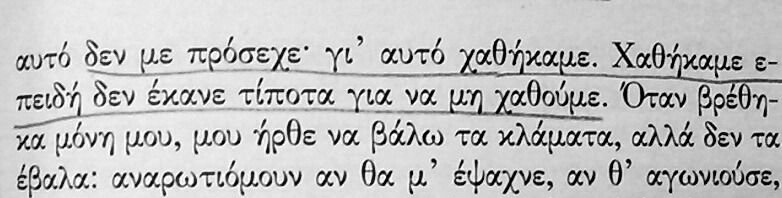 αυτό δεν με πρόσεχε· γι’ αυτό χαθήκαμε. Χαθήκαμε ε-
πειδή δεν έκανε τίποτα για να μη χαθούμε. Όταν βρέθη-
κα μόνη μου, μου ήρθε να βάλω τα κλάματα, αλλά δεν τα
έβαλα: αναρωτιόμουν αν θα μ’ έψαχνε, αν θ’ αγωνιούσε,